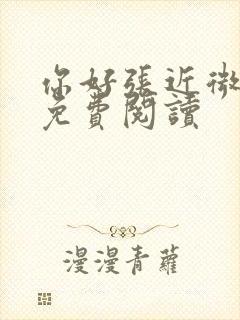 你好張近微
免費閱讀
漫漫青蘿